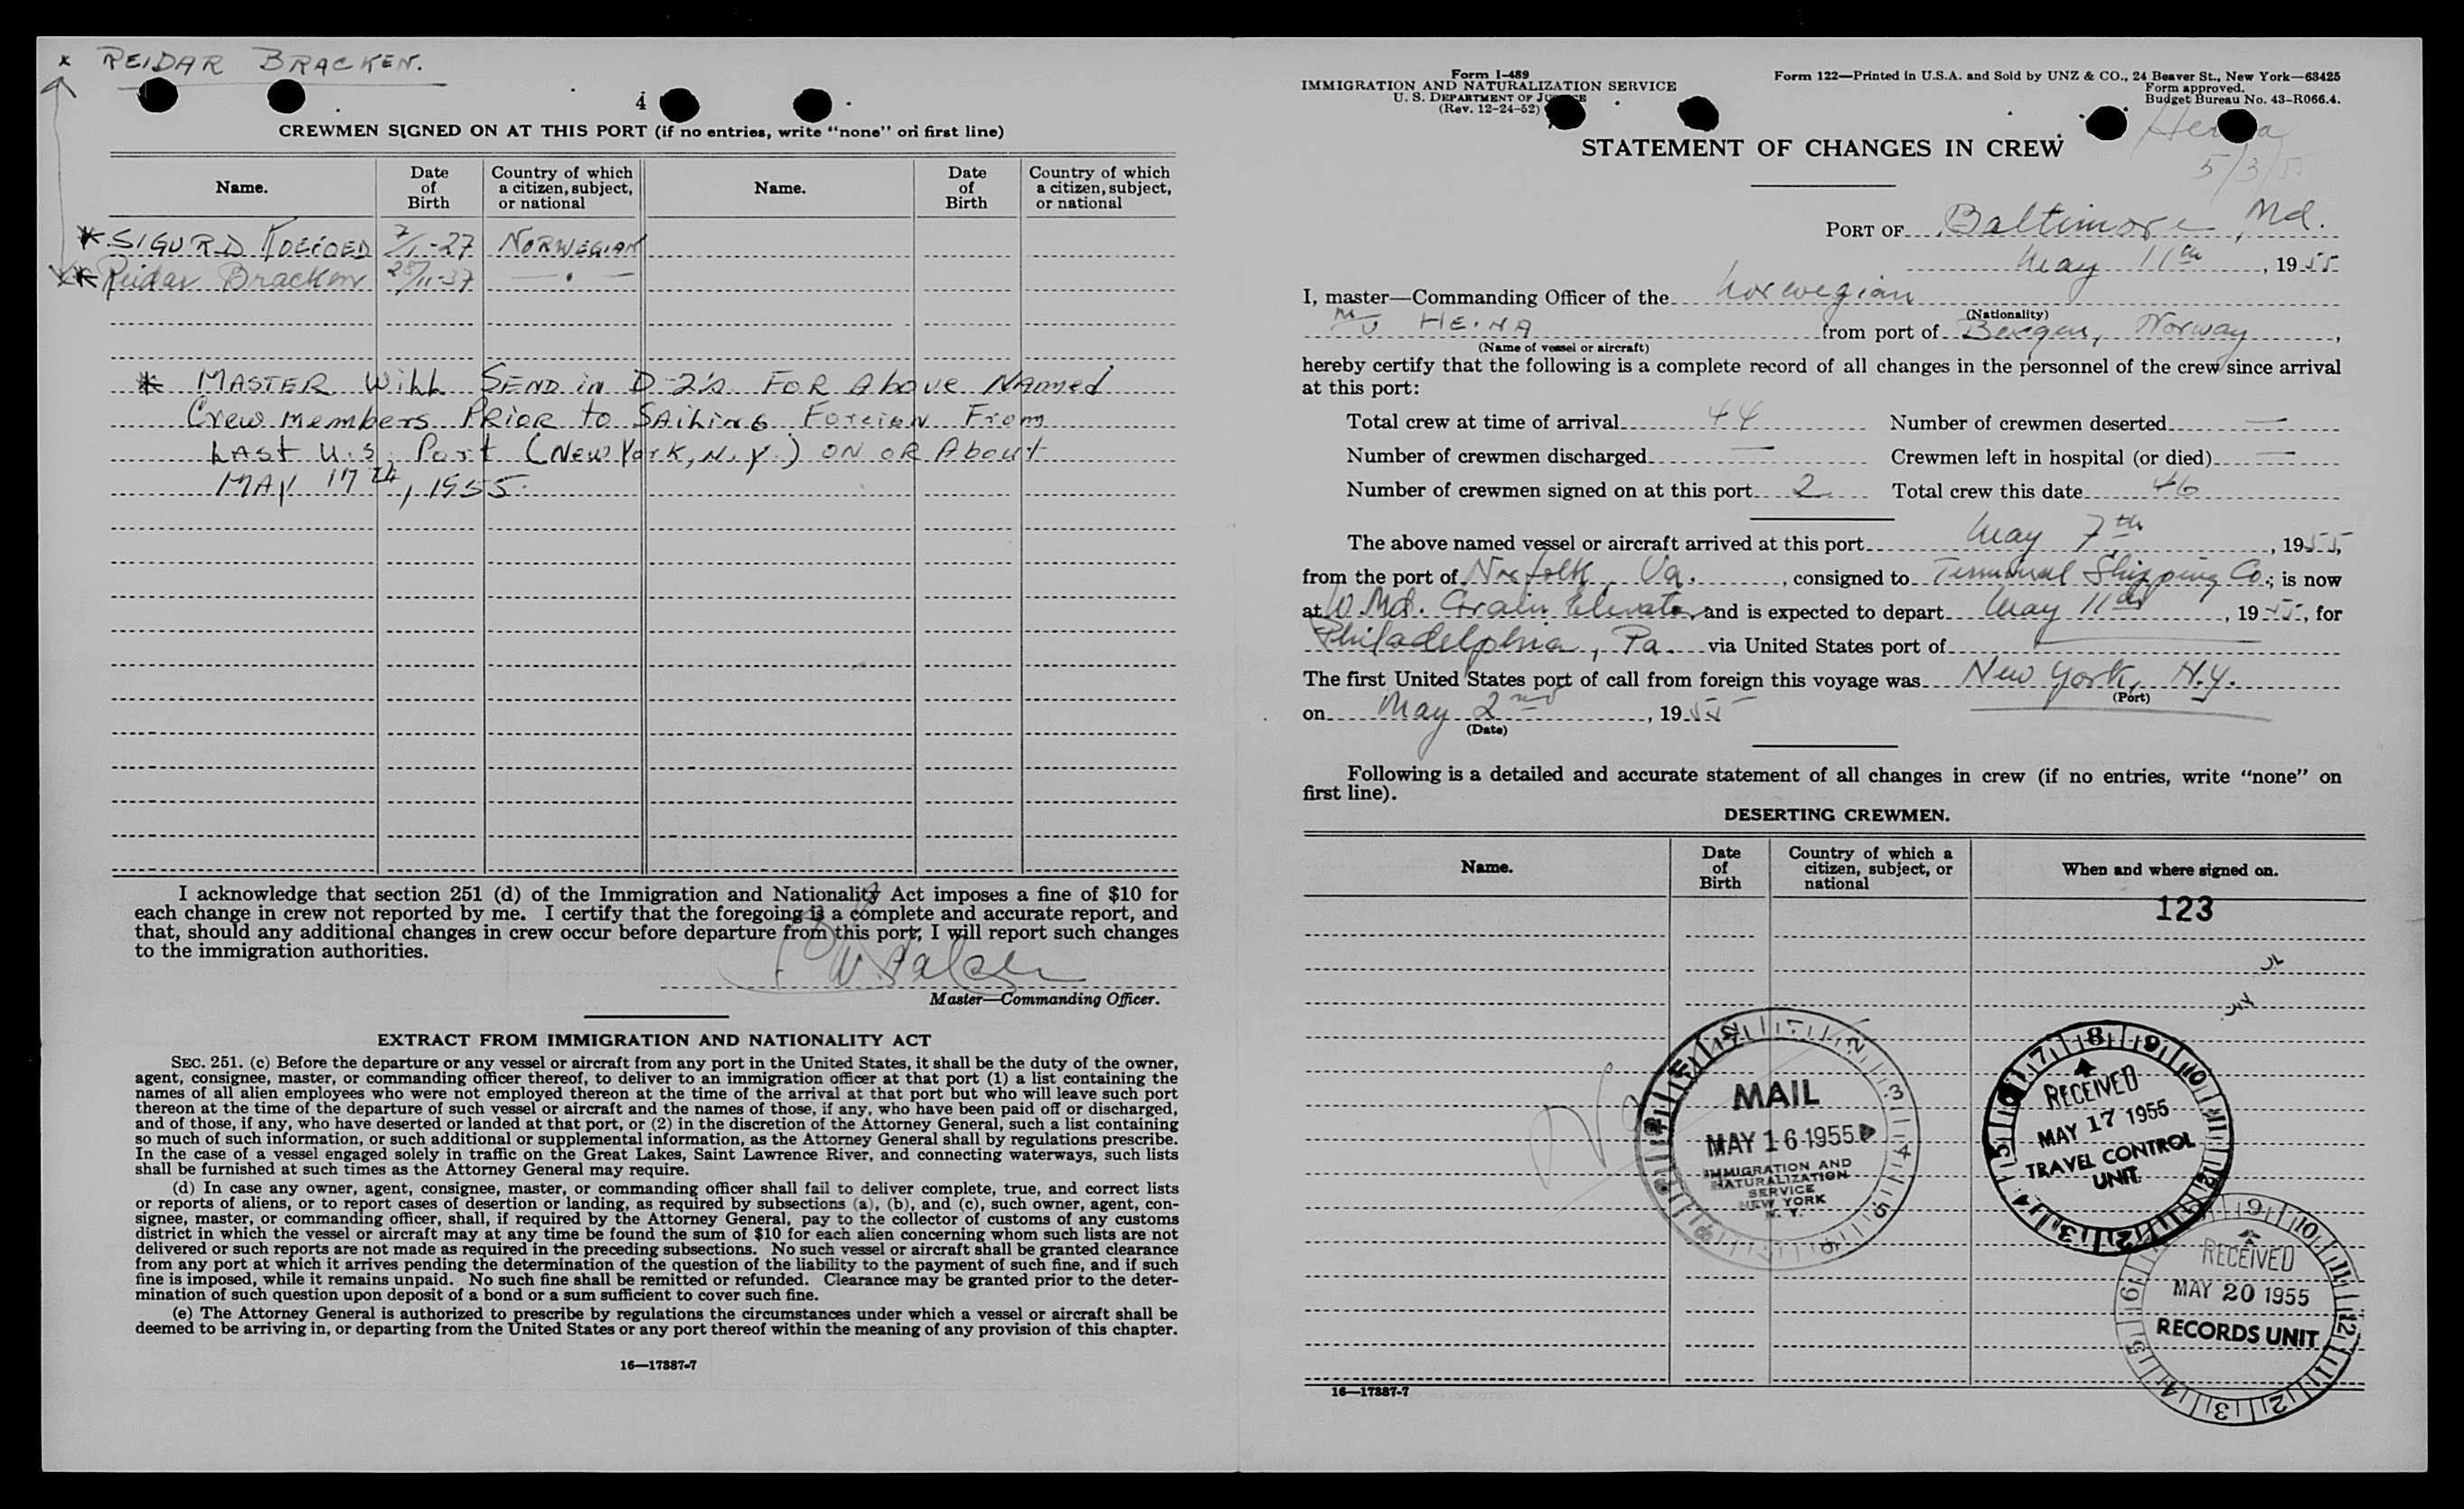 * REIDAR BRACKEN.
4
CREWMEN SIGNED ON AT THIS PORT (if no entries, write "none" on first line)
Name. Date of Birth Country of which a citizen, subject, or national Name. Date of Birth Country of which a citizen, subject, or national
* SIGURD 7/1-27 NORWEGIAN
* Reidar Bracken 28/11-37 — " —
* MASTER WILL SEND in D-2's FOR Above NAMed
Crew members PRIOR to SAILING FOREIGN From
LAST U.S. Port (New York, N.Y.) ON OR About
MAY 17th, 1955.
I acknowledge that section 251 (d) of the Immigration and Nationality Act imposes a fine of $10 for
each change in crew not reported by me. I certify that the foregoing is a complete and accurate report, and
that, should any additional changes in crew occur before departure from this port, I will report such changes
to the immigration authorities.
Master—Commanding Officer.
EXTRACT FROM IMMIGRATION AND NATIONALITY ACT
SEC. 251. (c) Before the departure or any vessel or aircraft from any port in the United States, it shall be the duty of the owner,
agent, consignee, master, or commanding officer thereof, to deliver to an immigration officer at that port (1) a list containing the
names of all alien employees who were not employed thereon at the time of the arrival at that port but who will leave such port
thereon at the time of the departure of such vessel or aircraft and the names of those, if any, who have been paid off or discharged,
and of those, if any, who have deserted or landed at that port, or (2) in the discretion of the Attorney General, such a list containing
so much of such information, or such additional or supplemental information, as the Attorney General shall by regulations prescribe.
In the case of a vessel engaged solely in traffic on the Great Lakes, Saint Lawrence River, and connecting waterways, such lists
shall be furnished at such times as the Attorney General may require.
(d) In case any owner, agent, consignee, master, or commanding officer shall fail to deliver complete, true, and correct lists
or reports of aliens, or to report cases of desertion or landing, as required by subsections (a), (b), and (c), such owner, agent, con-
signee, master, or commanding officer, shall, if required by the Attorney General, pay to the collector of customs of any customs
district in which the vessel or aircraft may at any time be found the sum of $10 for each alien concerning whom such lists are not
delivered or such reports are not made as required in the preceding subsections. No such vessel or aircraft shall be granted clearance
from any port at which it arrives pending the determination of the question of the liability to the payment of such fine, and if such
fine is imposed, while it remains unpaid. No such fine shall be remitted or refunded. Clearance may be granted prior to the deter-
mination of such question upon deposit of a bond or a sum sufficient to cover such fine.
(e) The Attorney General is authorized to prescribe by regulations the circumstances under which a vessel or aircraft shall be
deemed to be arriving in, or departing from the United States or any port thereof within the meaning of any provision of this chapter.
16—17887-7
Form I-489
IMMIGRATION AND NATURALIZATION SERVICE
U. S. DEPARTMENT OF JUSTICE
(Rev. 12-24-52)
Form 122—Printed in U.S.A. and Sold by UNZ & CO., 24 Beaver St., New York—63425
Form approved.
Budget Bureau No. 43-R066.4.
5/3/55
STATEMENT OF CHANGES IN CREW
PORT OF Baltimore, Md.
May 11th, 1955
I, master—Commanding Officer of the Norwegian
(Nationality)
M/V from port of Bergen, Norway,
(Name of vessel or aircraft)
hereby certify that the following is a complete record of all changes in the personnel of the crew since arrival
at this port:
Total crew at time of arrival 44 Number of crewmen deserted —
Number of crewmen discharged — Crewmen left in hospital (or died) —
Number of crewmen signed on at this port 2 Total crew this date 46
The above named vessel or aircraft arrived at this port May 7th, 1955,
from the port of Norfolk, Va., consigned to Terminal Shipping Co.; is now
at W. Md. Grain Elevator and is expected to depart May 11th, 1955, for
Philadelphia, Pa. via United States port of —
The first United States port of call from foreign this voyage was New York, N.Y.
(Port)
on May 2nd, 1955
(Date)
Following is a detailed and accurate statement of all changes in crew (if no entries, write "none" on
first line).
DESERTING CREWMEN.
Name. Date of Birth Country of which a citizen, subject, or national When and where signed on.
123
MAIL
MAY 16 1955
IMMIGRATION AND
NATURALIZATION
SERVICE
NEW YORK
N. Y.
RECEIVED
MAY 17 1955
TRAVEL CONTROL
UNIT
RECEIVED
MAY 20 1955
RECORDS UNIT
16—17887-7